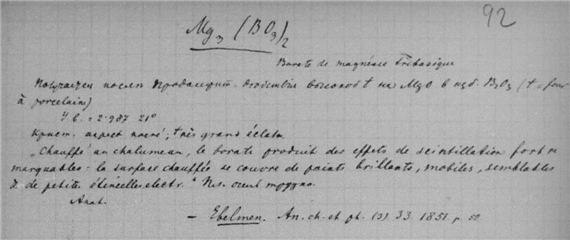 92
Mg₃ (BO₃)₂
Borate de magnésie tribasique
Получается после продолжит. действия высокой t на MgO в изб. B₂O₃ (t = four
à porcelaine)
У. в. = 2.987 21°
Крист. aspect nacré, très grand éclat.
"Chauffé au chalumeau, le borate produit des effets de scintillation fort re
marquables: la surface chauffée se couvre de points brillants, mobiles, semblables
à de petites étincelles electr."
Anal.
— Ebelmen. An. ch. et ph. (3). 33. 1851. p. 50